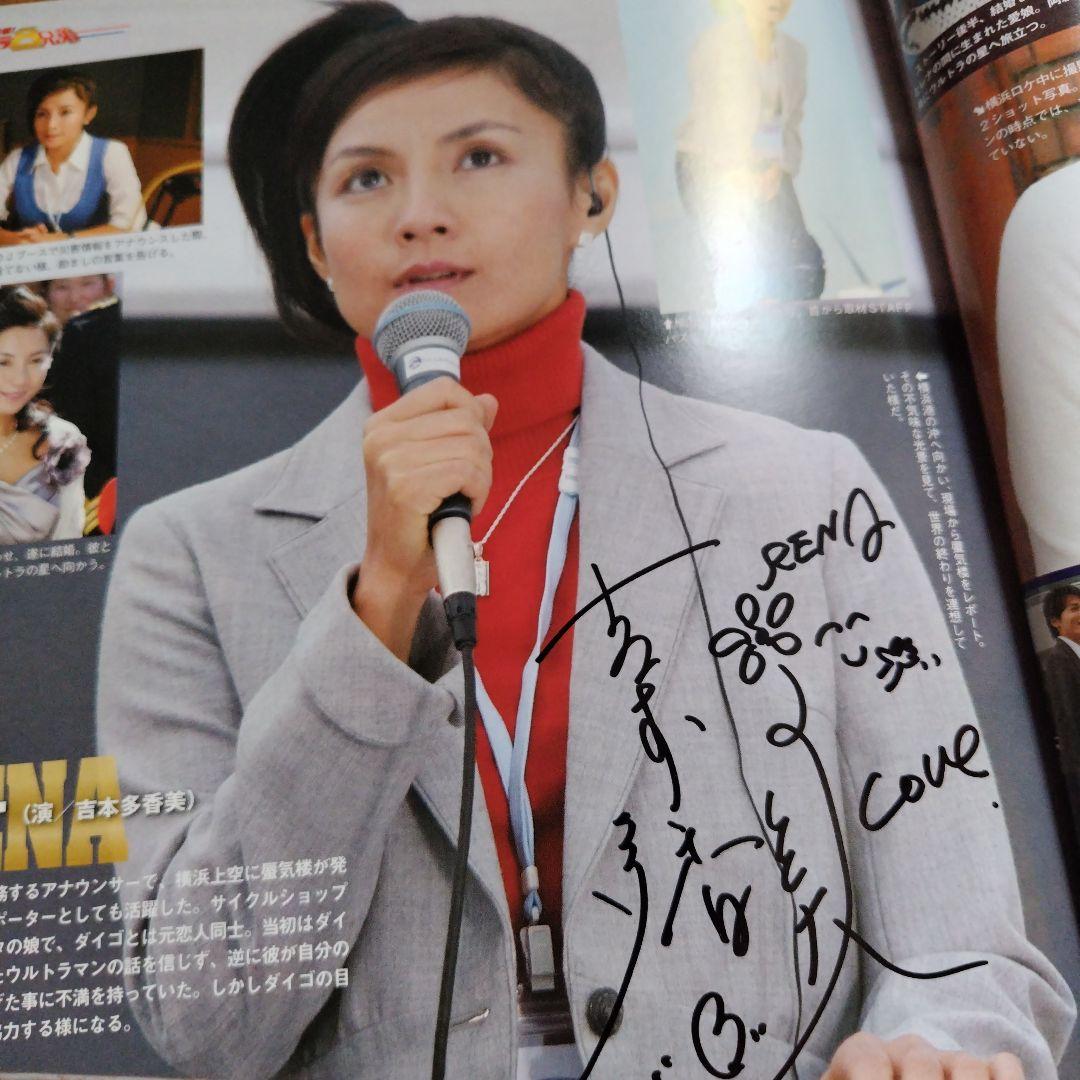 8兄弟
ーリー後半、結婚
の間に生まれた愛娘。
ウルトラの星へ旅立つ。
横浜ロケ中に撮
2ショット写真。
ンの時点では、
ていない。
ブースで災害情報をアナウンスした際、
てない様、励ましの言葉を告げる。
から取材STAFF
横浜港の沖へ向かい、現場から蜃気楼をレポート。
その不気味な光景を見て、世界の終わりを連想して
いた様だ。
せ、遂に結婚。彼と
ルトラの星へ向かう。
RENA
吉本多香美
Love
ENA
(演/吉本多香美)
務するアナウンサーで、横浜上空に蜃気楼が発
ポーターとしても活躍した。サイクルショップ
の娘で、ダイゴとは元恋人同士。当初はダイ
たウルトラマンの話を信じず、逆に彼が自分の
げた事に不満を持っていた。しかしダイゴの目
協力する様になる。